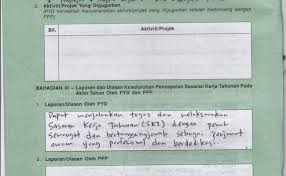 2. Aktiviti/Projek Yang Digugurkan
(PYD hendaklah menyenaraikan aktiviti/projek yang digugurkan setelah berbincang dengan PPP)
Bil.
Aktiviti/Projek
BAHAGIAN III – Laporan dan Ulasan Keseluruhan Pencapaian Sasaran Kerja Tahunan Pada
Akhir Tahun Oleh PYD dan PPP
1. Laporan/Ulasan Oleh PYD
Dapat menjalankan tugas dan melaksanakan
Sasaran Kerja Tahunan (SKT) dengan penuh
semangat dan bertanggungjawab sebagai penjawat
awam yang profesional dan berdedikasi.
2. Laporan/Ulasan Oleh PPP